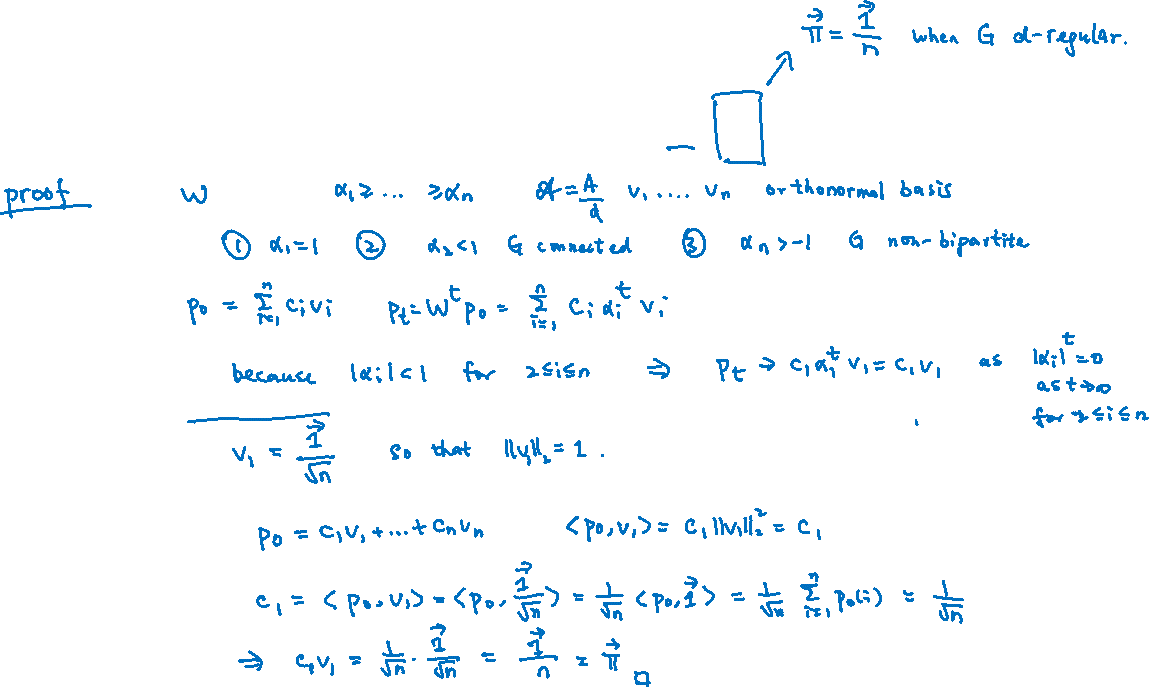 π⃗ = 1⃗/n when G d-regular.
proof W α₁ ≥ ... ≥ αₙ 𝒜 = A/d v₁ .... vₙ orthonormal basis
① α₁=1 ② α₂<1 G connected ③ αₙ>-1 G non-bipartite
p₀ = Σᵢ₌₁ⁿ cᵢvᵢ pₜ = Wᵗp₀ = Σᵢ₌₁ⁿ cᵢ αᵢᵗ vᵢ
because |αᵢ|<1 for 2≤i≤n ⇒ pₜ → c₁α₁ᵗv₁ = c₁v₁ as |αᵢ|ᵗ=0
as t→∞
for 2≤i≤n
v₁ = 1⃗/√n so that ||v₁||₂ = 1.
p₀ = c₁v₁+...+cₙvₙ <p₀,v₁> = c₁||v₁||₂² = c₁
c₁ = <p₀,v₁> = <p₀, 1⃗/√n> = 1/√n <p₀,1⃗> = 1/√n Σᵢ₌₁ⁿ p₀(i) = 1/√n
⇒ c₁v₁ = 1/√n · 1⃗/√n = 1⃗/n = π⃗ □